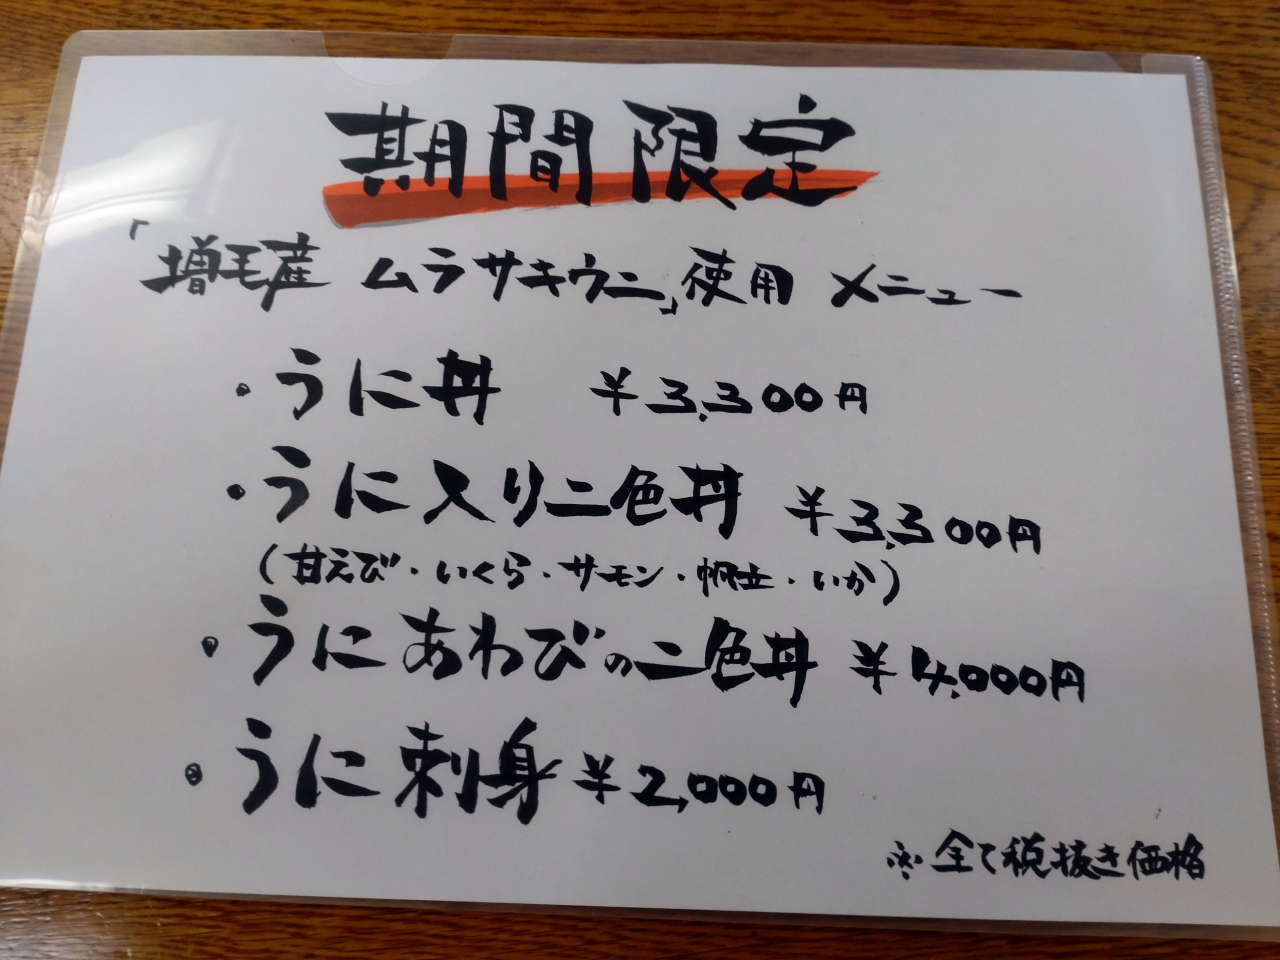 期間限定
「増毛産 ムラサキウニ」使用 メニュー
・うに丼 ¥3,300円
・うに入り二色丼 ¥3,300円
(甘えび・いくら・サーモン・帆立・いか)
・うにあわびの二色丼 ¥4,000円
・うに刺身 ¥2,000円
※全て税抜き価格